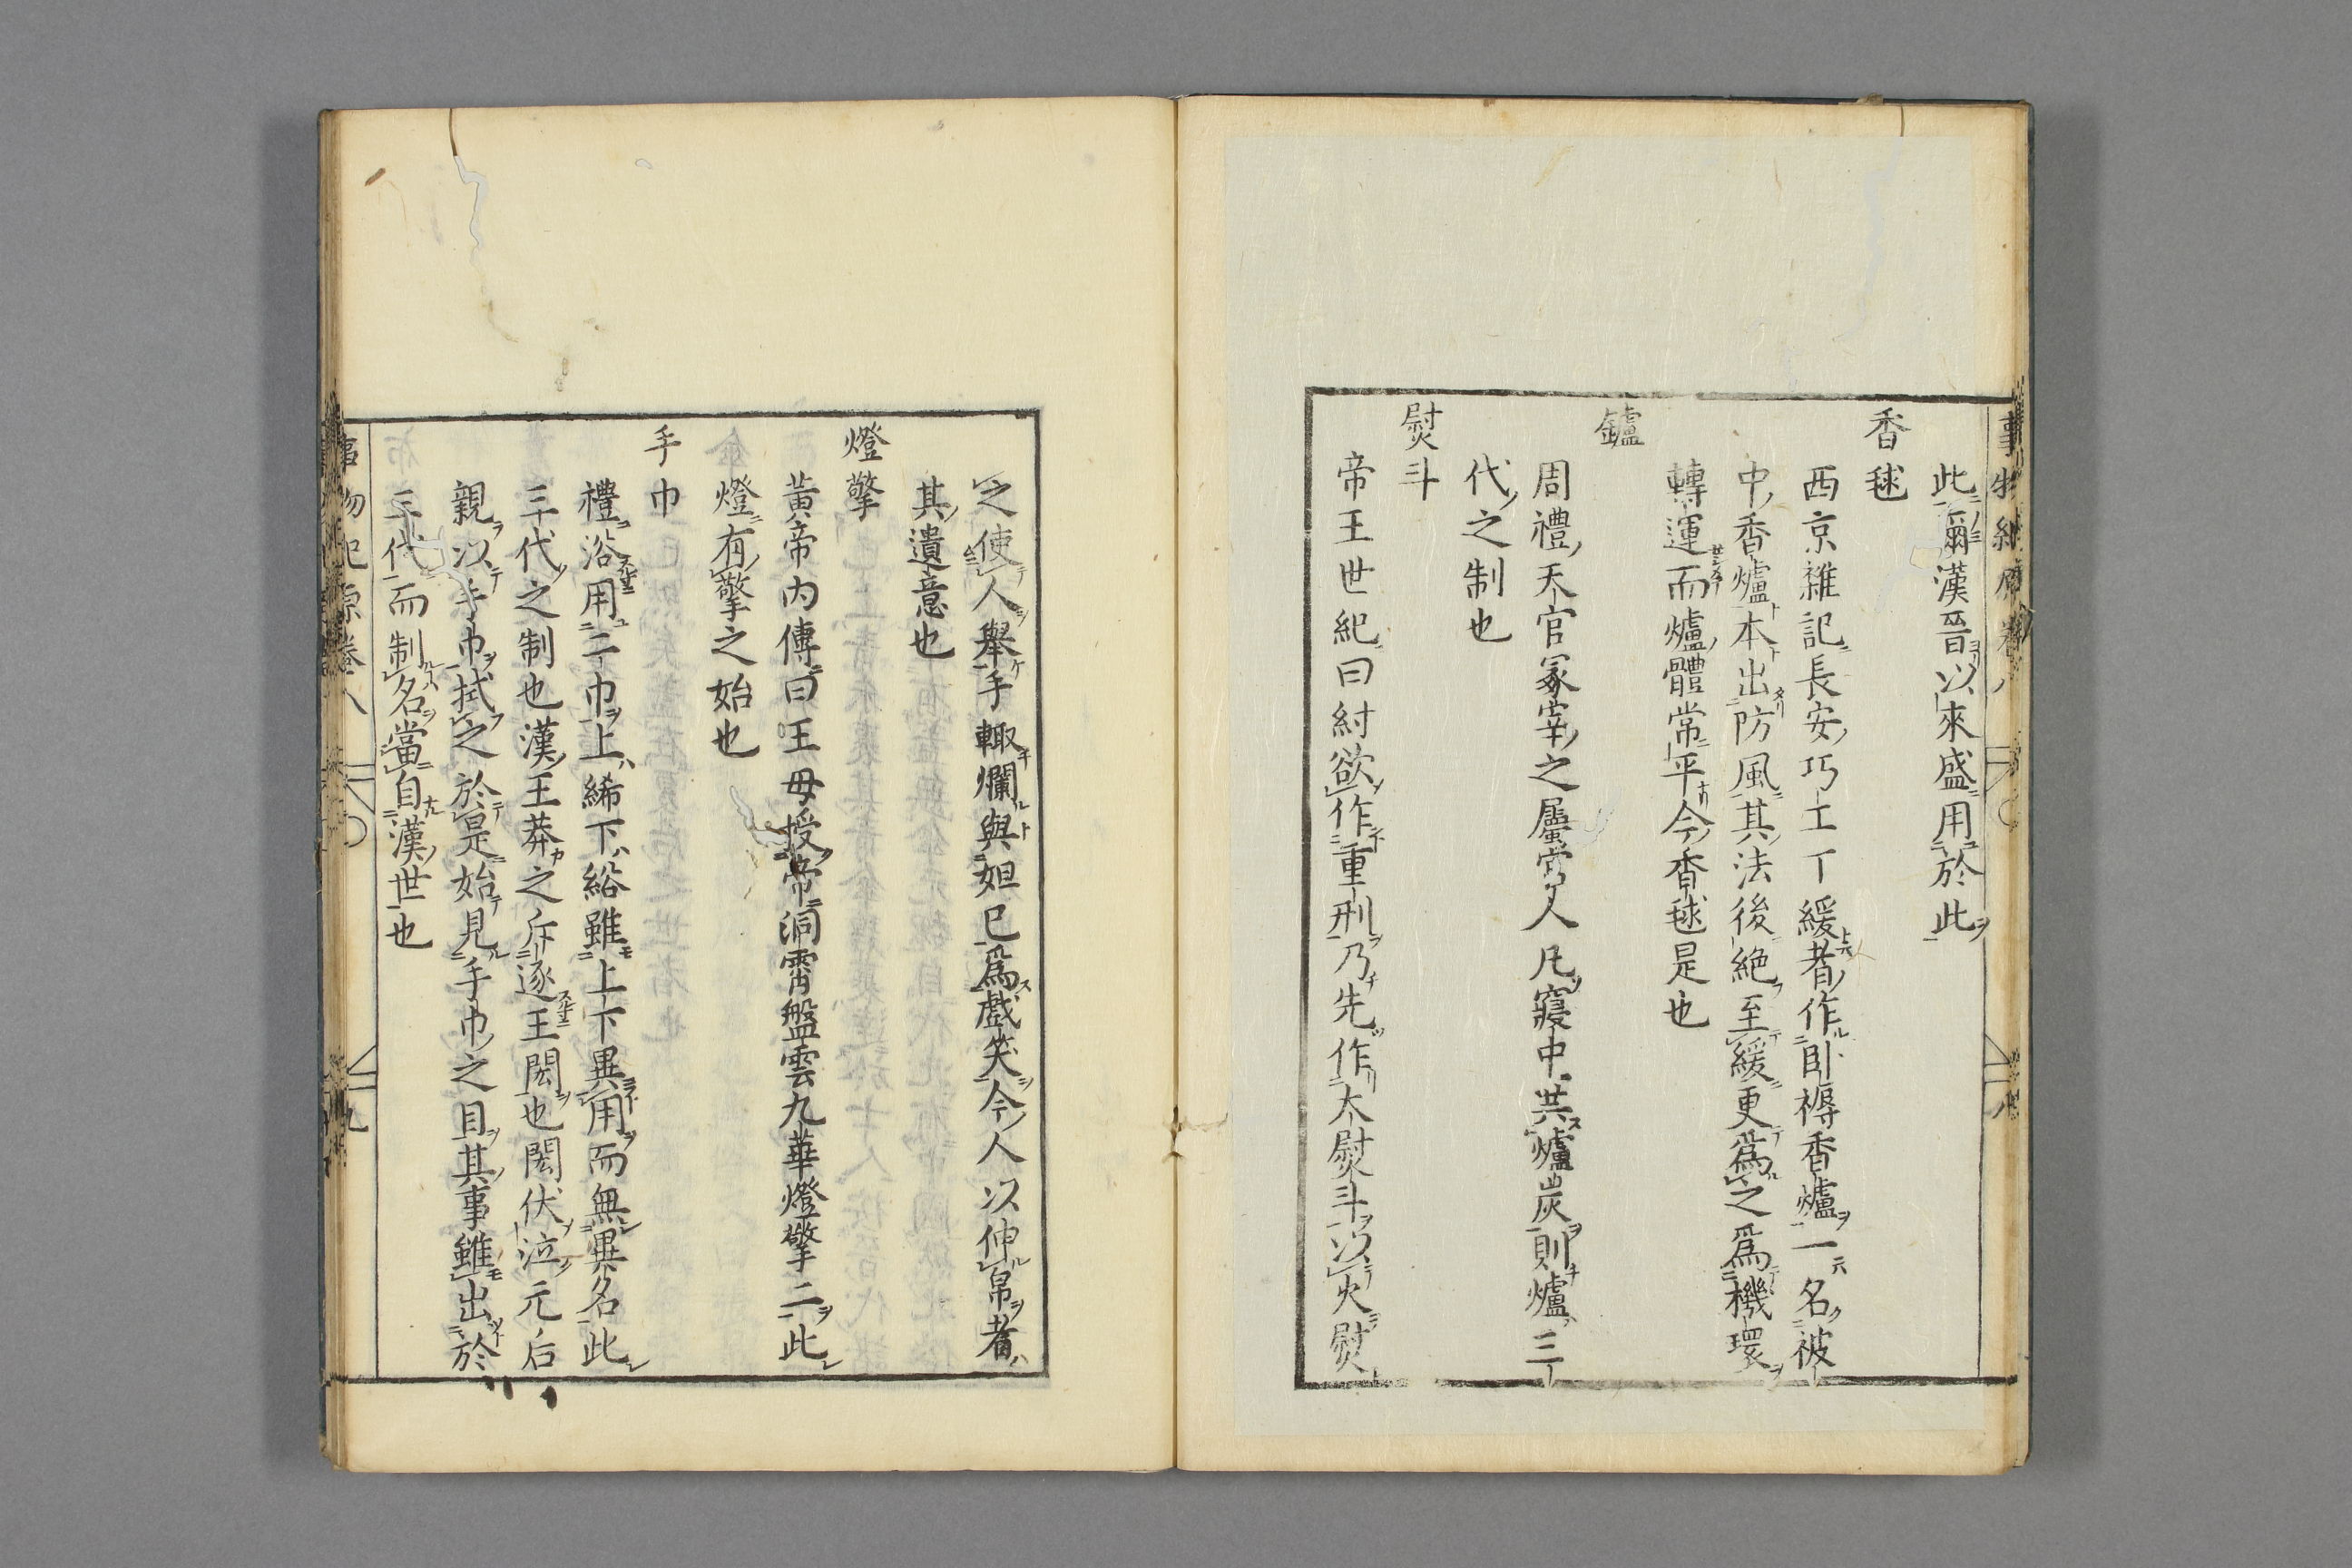 此爾漢晉以來盛用於此
香毬
西京雜記長安巧工丁緩者作臥褥香爐一名被
中香爐本出防風其法後絶至緩更爲之爲機環
轉運而爐體常平今香毬是也
鑪
周禮天官冢宰之屬宮人凡寢中共爐炭則爐三
代之制也
熨斗
帝王世紀曰紂欲作重刑乃先作大熨斗以火熨
之使人舉手輙爛與妲己爲戲笑今人以伸帛者
其遺意也
燈擎
黃帝内傳曰王母授帝洞霄盤雲九華燈擎二此
燈有擎之始也
手巾
禮浴用二巾上絺下綌雖上下異用而無異名此
三代之制也漢王莽之斥逐王閎也閎伏泣元后
親以手巾拭之於是始見手巾之目其事雖出於
三代而制名當自漢世也
事物紀原卷八 九